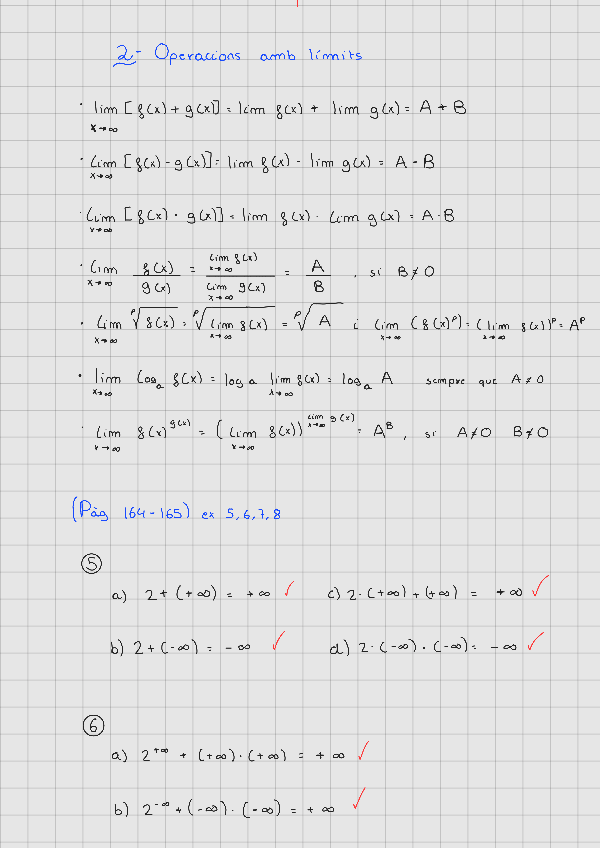 2- Operacions amb límits
· lim x→∞ [f(x) + g(x)] = lim f(x) + lim g(x) = A + B
· Lim x→∞ [f(x) - g(x)] = lim f(x) - lim g(x) = A - B
· Lim x→∞ [f(x) · g(x)] = lim f(x) · Lim g(x) = A · B
· Lim x→∞ f(x)/g(x) = Lim x→∞ f(x) / Lim x→∞ g(x) = A/B , si B≠0
· Lim x→∞ ᵖ√f(x) = ᵖ√Lim x→∞ f(x) = ᵖ√A i Lim x→∞ (f(x)ᵖ) = (Lim x→∞ f(x))ᵖ = Aᵖ
· lim x→∞ Logₐ f(x) = log a lim x→∞ f(x) = logₐ A sempre que A≠0
· Lim x→∞ f(x)^g(x) = (Lim x→∞ f(x))^Lim x→∞ g(x) = A^B, si A≠0 B≠0
(Pàg 164-165) ex 5, 6, 7, 8
⑤
a) 2 + (+∞) = +∞ ✓ c) 2·(+∞) + (+∞) = +∞ ✓
b) 2 + (-∞) = -∞ ✓ d) 2·(-∞)·(-∞) = -∞ ✓
⑥
a) 2^+∞ + (+∞)·(+∞) = +∞ ✓
b) 2^-∞ + (-∞)·(-∞) = +∞ ✓